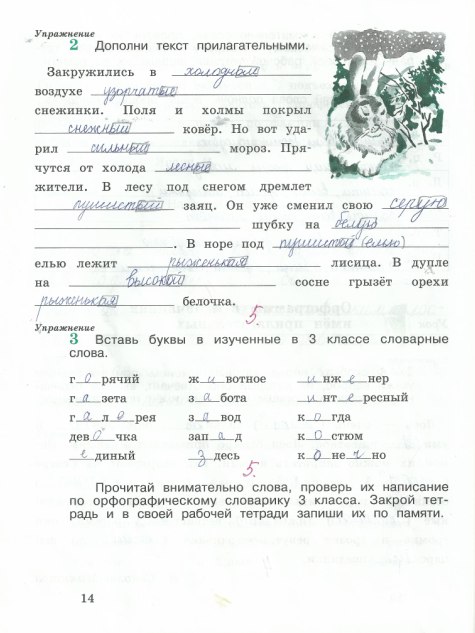 Упражнение
2 Дополни текст прилагательными.
Закружились в холодном
воздухе узорчатые
снежинки. Поля и холмы покрыл
снежный ковёр. Но вот уда-
рил сильный мороз. Пря-
чутся от холода лесные
жители. В лесу под снегом дремлет
пушистый заяц. Он уже сменил свою серую
шубку на белую
. В норе под пушистой (елью)
елью лежит рыженькая лисица. В дупле
на высокой сосне грызёт орехи
рыженькая белочка.
5
Упражнение
3 Вставь буквы в изученные в 3 классе словарные
слова.
горячий животное инженер
газета забота интересный
галорея завод когда
девочка запад костюм
единый здесь конечно
5.
Прочитай внимательно слова, проверь их написание
по орфографическому словарику 3 класса. Закрой тет-
радь и в своей рабочей тетради запиши их по памяти.
14